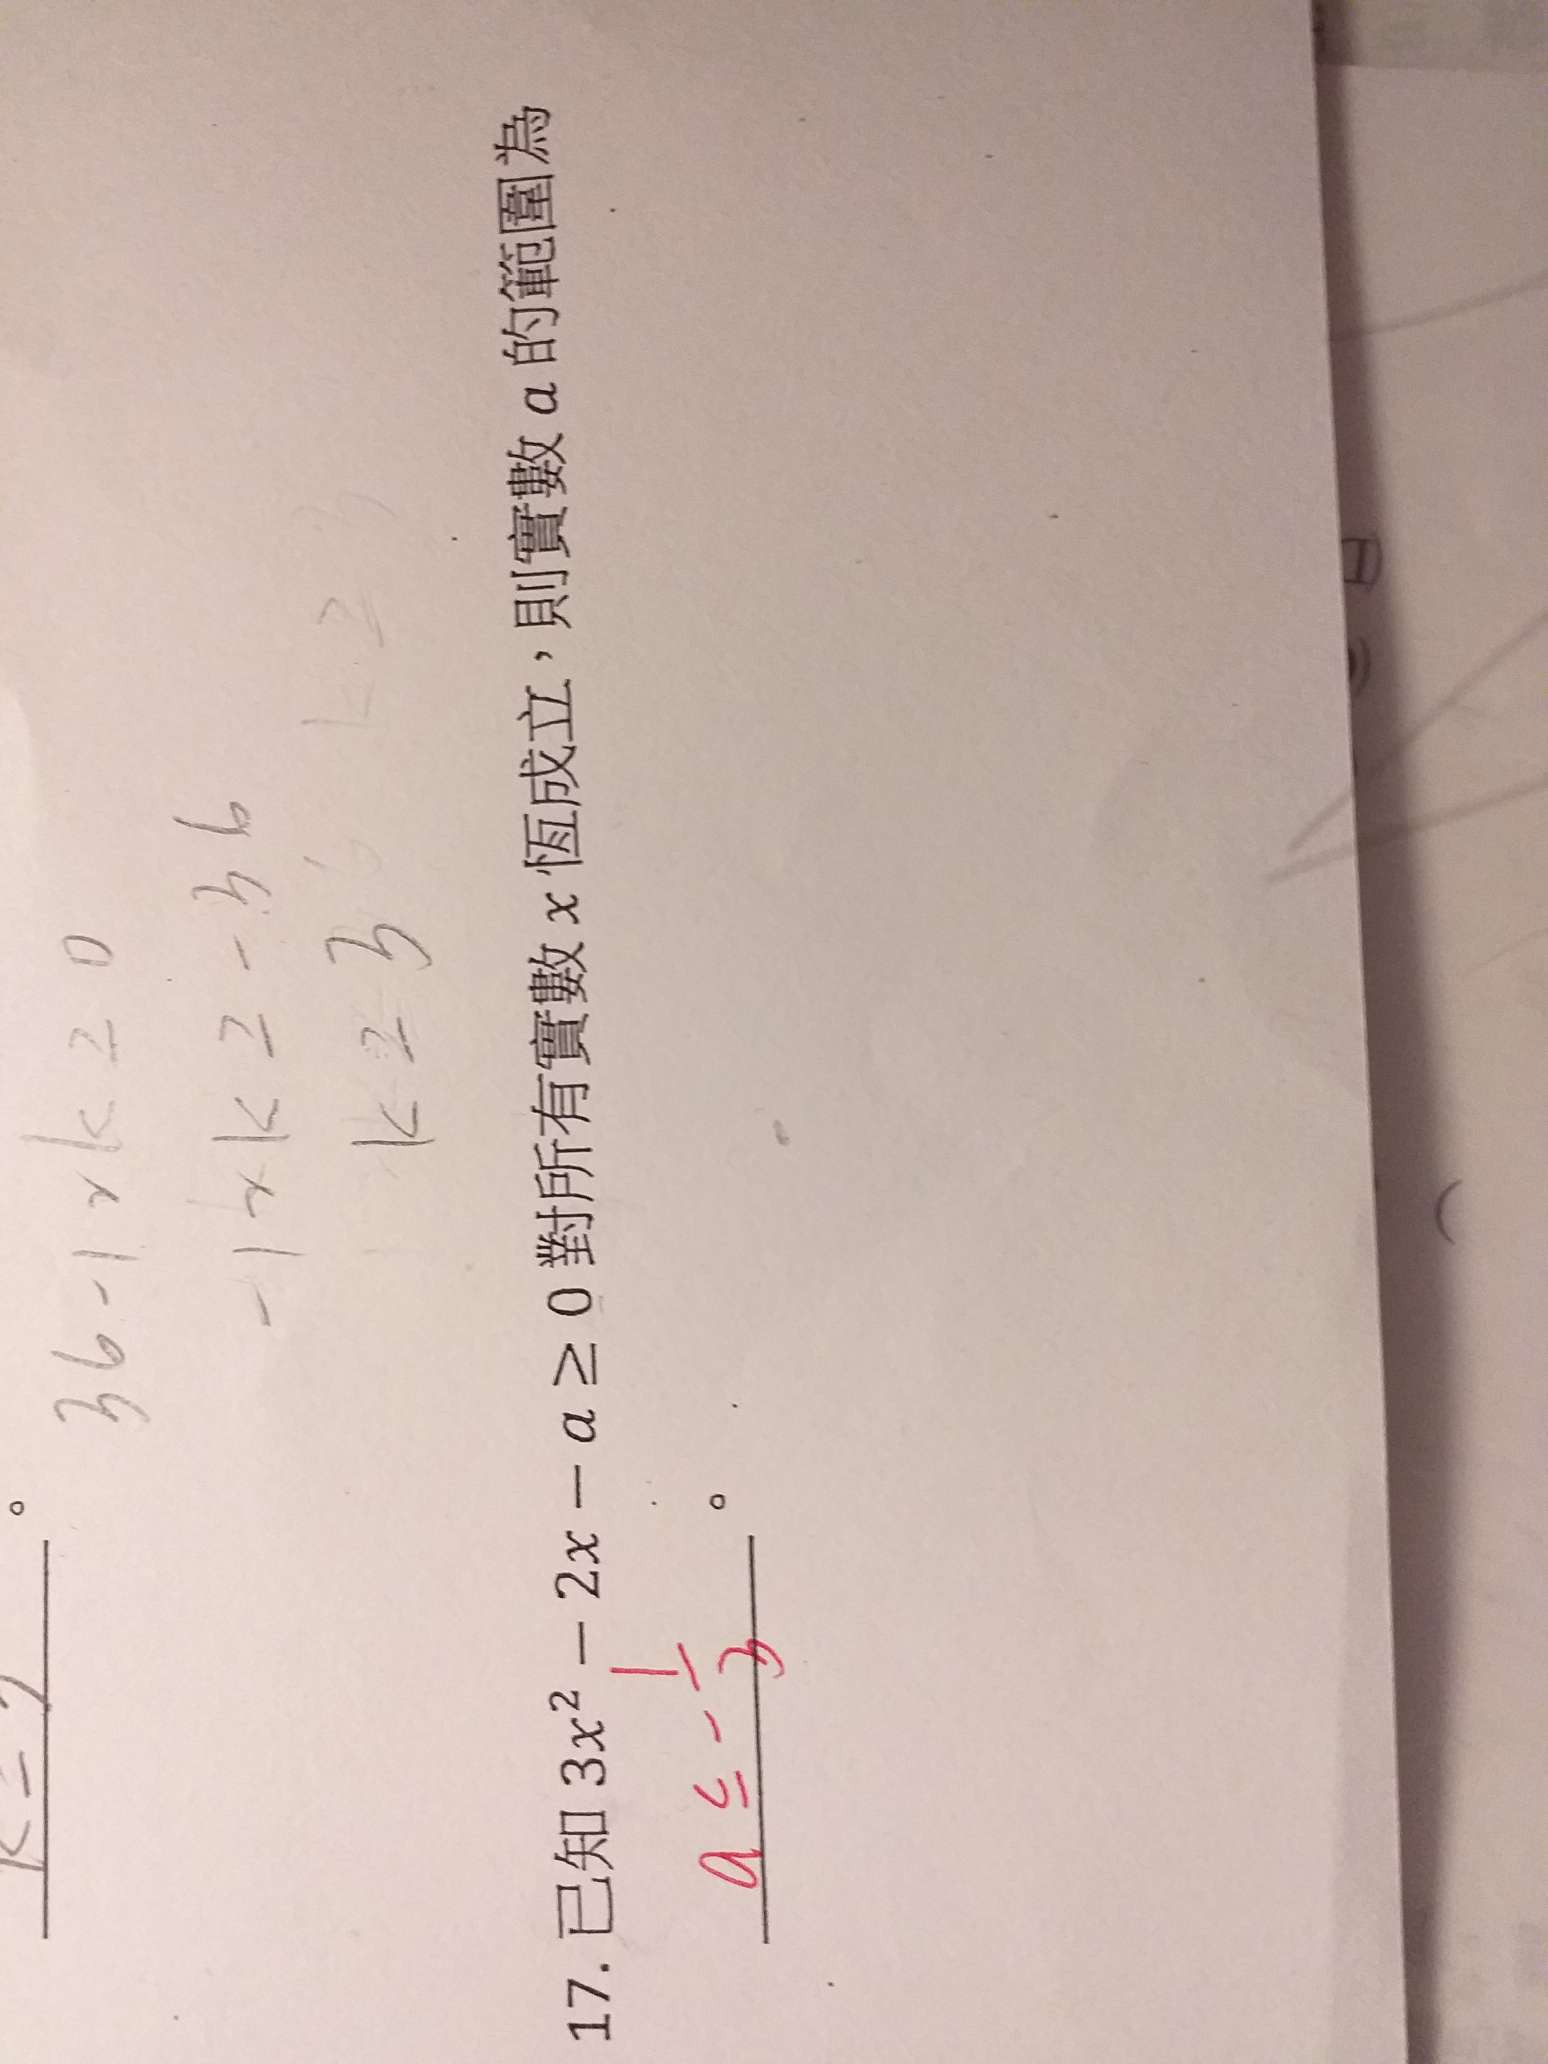 k ≥
。
36-12k≥0
-12k≥-36
k≥3
k≥3
17. 已知 3x² − 2x − a ≥ 0 對所有實數 x 恆成立，則實數 a 的範圍為
a ≤ -1/3 。